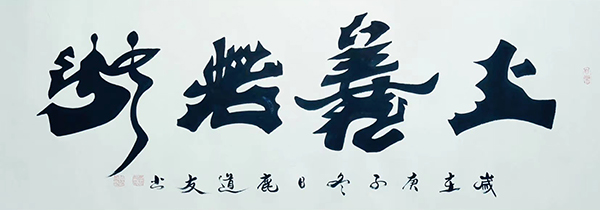 上善若水
歲在庚子冬日鹿道友书